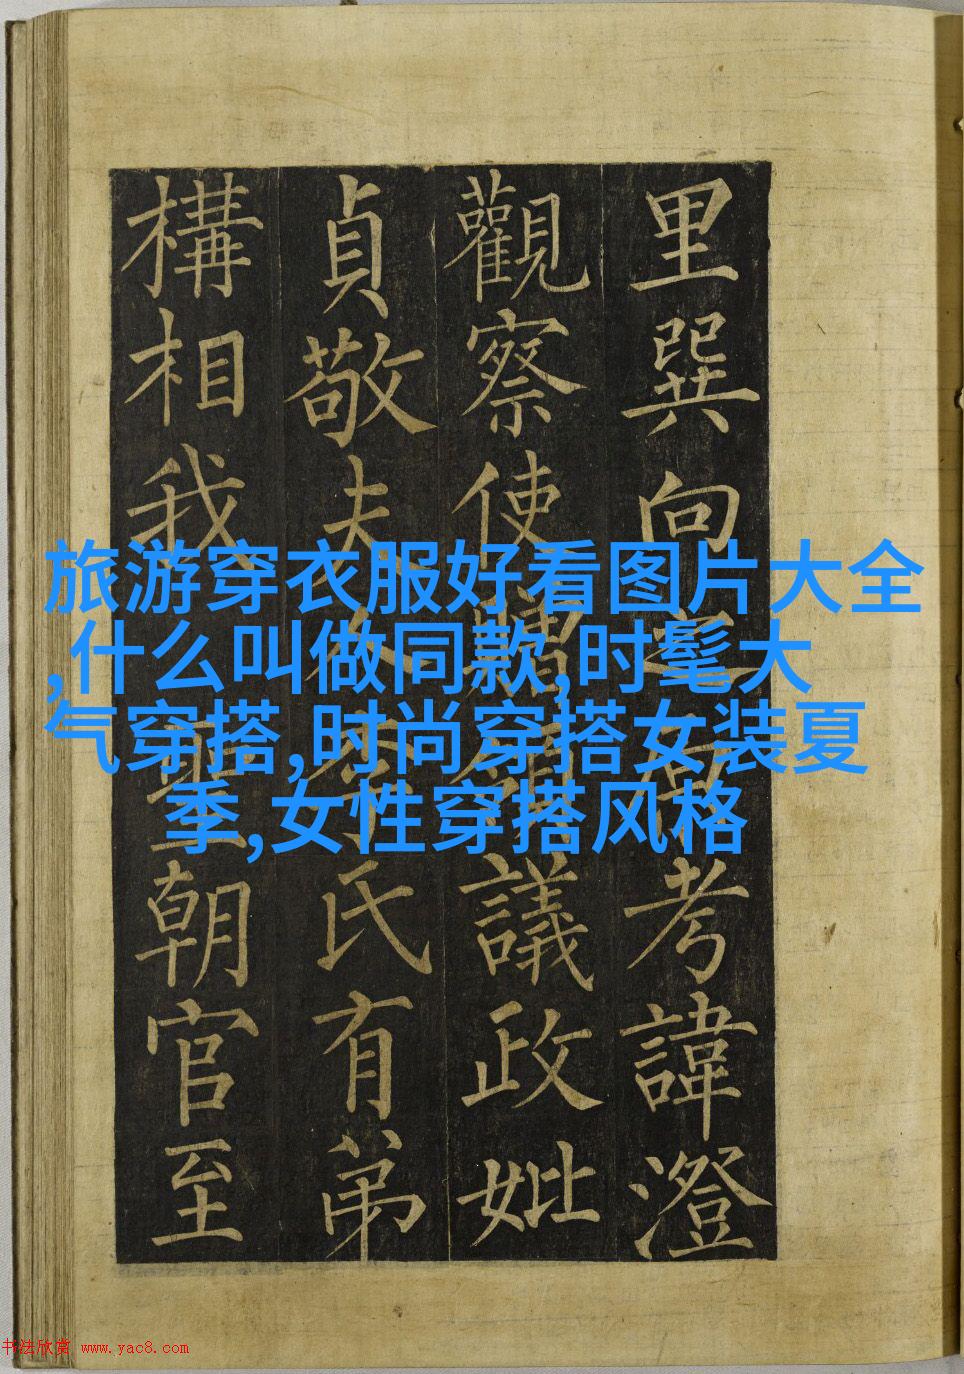 里巽向之考諱澄
觀察使贈領議政妣
貞敬夫人李氏有弟
構相我聖朝官至
旅游穿衣服好看图片大全
,什么叫做同款,时髦大
气穿搭,时尚穿搭女装夏
季,女性穿搭风格
书法欣赏 www.yac8.com